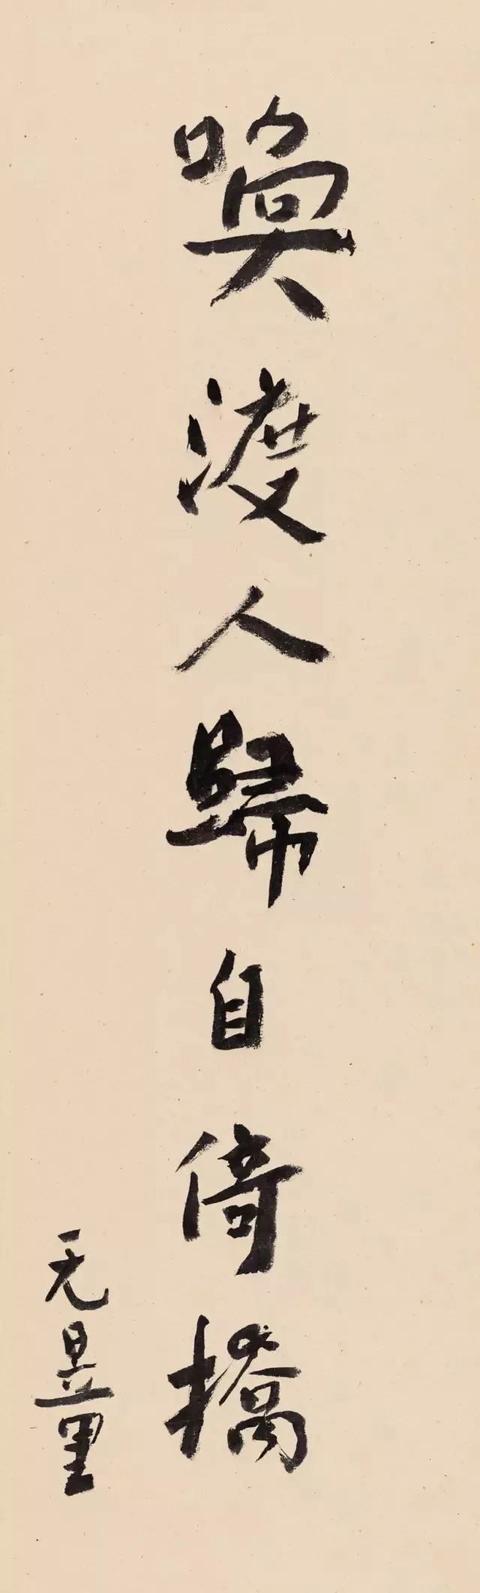 喚渡人歸自倚橋
无昱里